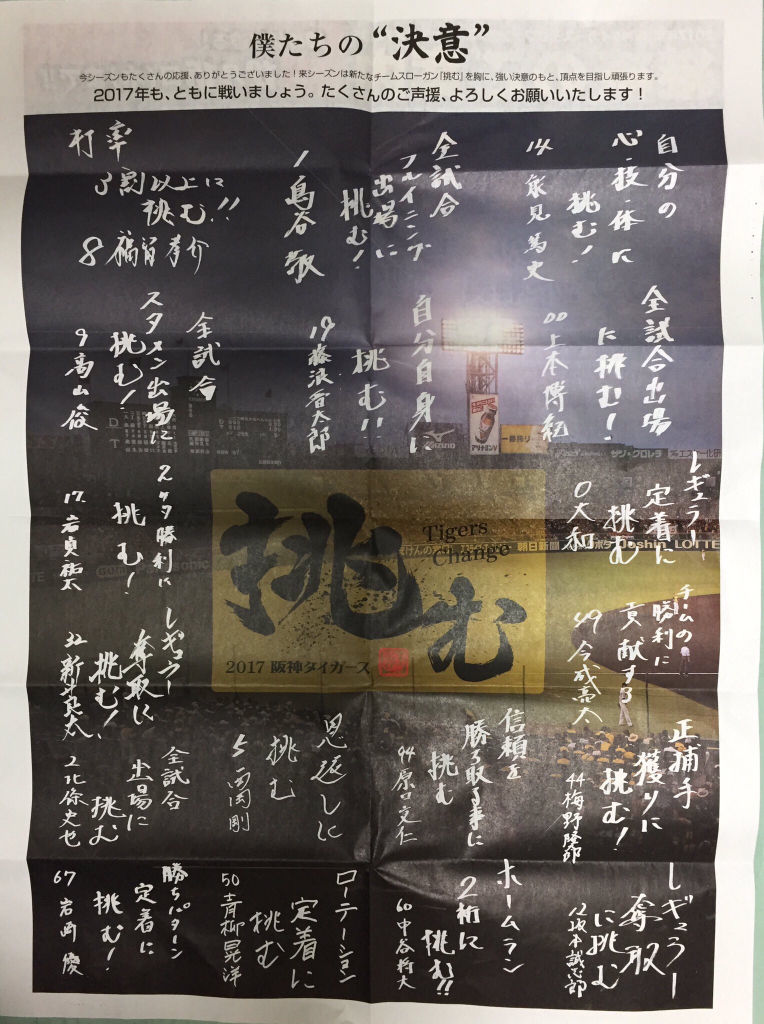 僕たちの“決意”
今シーズンもたくさんの応援、ありがとうございました！来シーズンは新たなチームスローガン「挑む」を胸に、強い決意のもと、頂点を目指し頑張ります。
2017年も、ともに戦いましょう。たくさんのご声援、よろしくお願いいたします！
自分の
心・技・体に
挑む！
14 能見篤史
全試合
フルイニング
出場に
挑む！
1 鳥谷敬
打率
3割以上に
挑む!!
8 福留孝介
全試合出場
に挑む！
00 上本博紀
自分自身に
挑む!!
19 藤浪晋太郎
全試合
スタメン出場に
挑む！
9 髙山俊
レギュラー
定着に
挑む
0 大和
チームの
勝利に
貢献する
49 今成亮太
2ケタ勝利に
挑む！
17 岩貞祐太
レギュラー
奪取に
挑む！
32 新井良太
正捕手
獲りに
挑む！
44 梅野隆太郎
信頼を
勝ち取る事に
挑む
94 原口文仁
恩返しに
挑む
5 西岡剛
全試合
出場に
挑む
2 北條史也
レギュラー
奪取
に挑む
12 坂本誠志郎
ホームラン
2桁に
挑む!!
60 中谷将大
ローテーション
定着に
挑む
50 青柳晃洋
勝ちパターン
定着に
挑む！
67 岩崎優
挑む
Tigers
Change
2017 阪神タイガース
アリナミンV
MIZUNO
一番搾り
サン・クロレラ
朝日新聞
Joshin
LOTTE